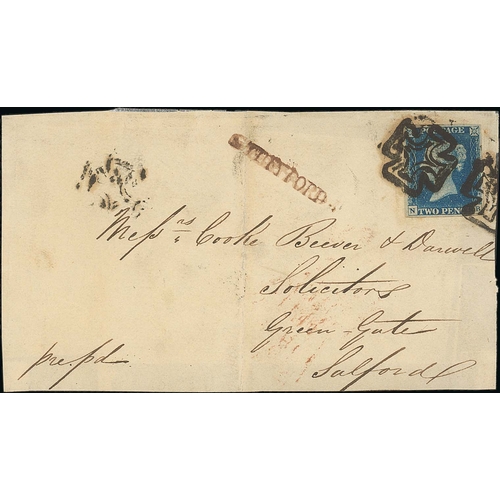 POSTAGE
TWO PENCE
N
Messrs Cooke Beever & Darwell
Solicitors
Green-Gate
Salford
pre.pd